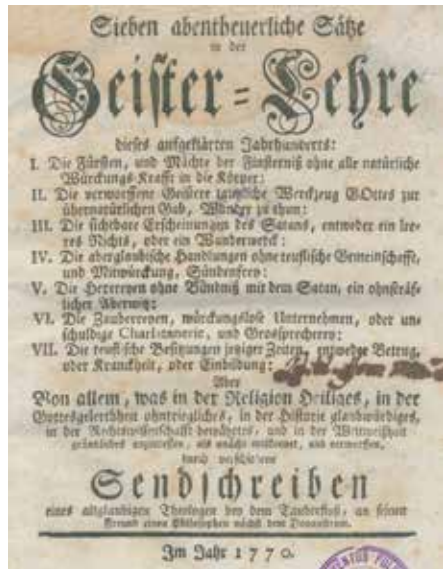 Sieben abentheuerliche Sätze
in der
Geister-Lehre
dieses aufgeklärten Jahrhunderts:
I. Die Fürsten, und Mächte der Finsterniß ohne alle natürliche
Würckungs-Krafft in die Körper:
II. Die verworffene Geistere taugliche Werckzeug GOttes zur
übernatürlichen Gab, Wunder zu thun:
III. Die sichtbare Erscheinungen des Satans, entweder ein lee-
res Nichts, oder ein Wunderwerck:
IV. Die aberglaubische Handlungen ohne teuflische Gemeinschafft,
und Mitwürckung, Sündenfrey:
V. Die Hexereyen ohne Bündniß mit dem Satan, ein ohnsträf-
licher Aberwitz:
VI. Die Zaubereyen, würckungslose Unternehmen, oder un-
schuldige Charlatanerie, und Grossprecherey:
VII. Die teuflische Besitzungen jetziger Zeiten, entweder Betrug,
oder Kranckheit, oder Einbildung:
Aber
Von allem, was in der Religion Heiliges, in der
Gottesgelerthheit ohntrügliches, in der Historie glaubwürdiges,
in der Rechtswissenschafft bewährtes, und in der Weltweißheit
gründliches anzutreffen, als unächt mißkennet, und verworffen,
durch
Sendschreiben
eines altglaubigen Theologen bey dem Tauberfluß, an seinen
Freund einen Philosophen nächst dem Donaustrom.
Im Jahr 1770.